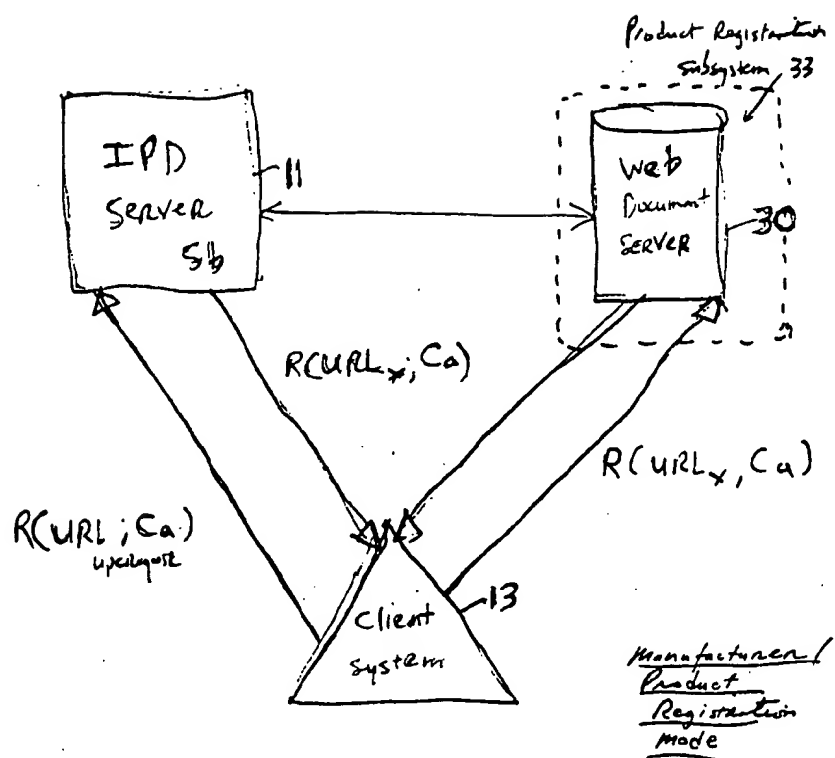 Product Registration
subsystem 33
IPD
SERVER
5b
11
Web
Document
SERVER
30
R(URLx; Ca)
R(URLx, Ca)
R(URL; Ca)
Client
system
13
Manufacturer /
Product
Registration
mode